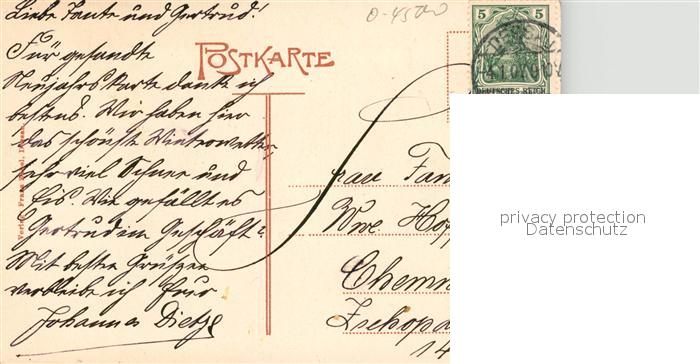 Liebe Tante und Gertrud!
Für gesandte
Neujahrskarte danke ich
bestens. Wir haben hier
das schönste Winterwetter,
sehr viel Schnee und
Eis. Wie gefällt es
Gertrud im Geschäft?
Mit besten Grüßen
verbleibe ich Euer
Johannes Dietze
POSTKARTE
5 5
DEUTSCHES REICH
Frau
Wwe
Chemn
Zschopa
14
privacy protection
Datenschutz